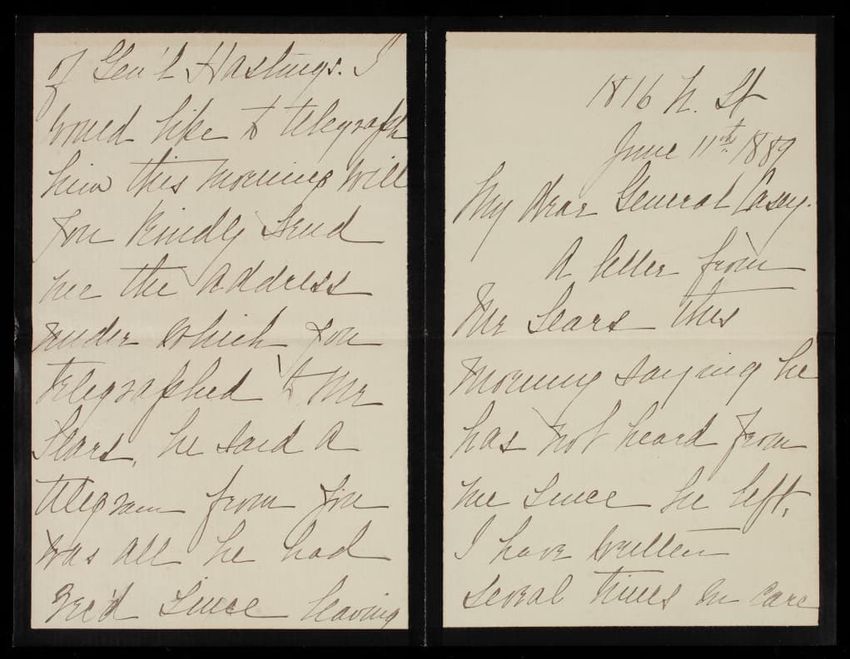 1816 N. St
June 11th 1889
My dear General Casey.
A letter from
Mr Sears this
morning saying he
has not heard from
me since he left,
I have written
several times in care
of Gen'l Hastings. I
would like to telegraph
him this morning will
you kindly send
me the address
under which you
telegraphed to Mr
Sears, he said a
telegram from you
was all he had
Rec'd since leaving